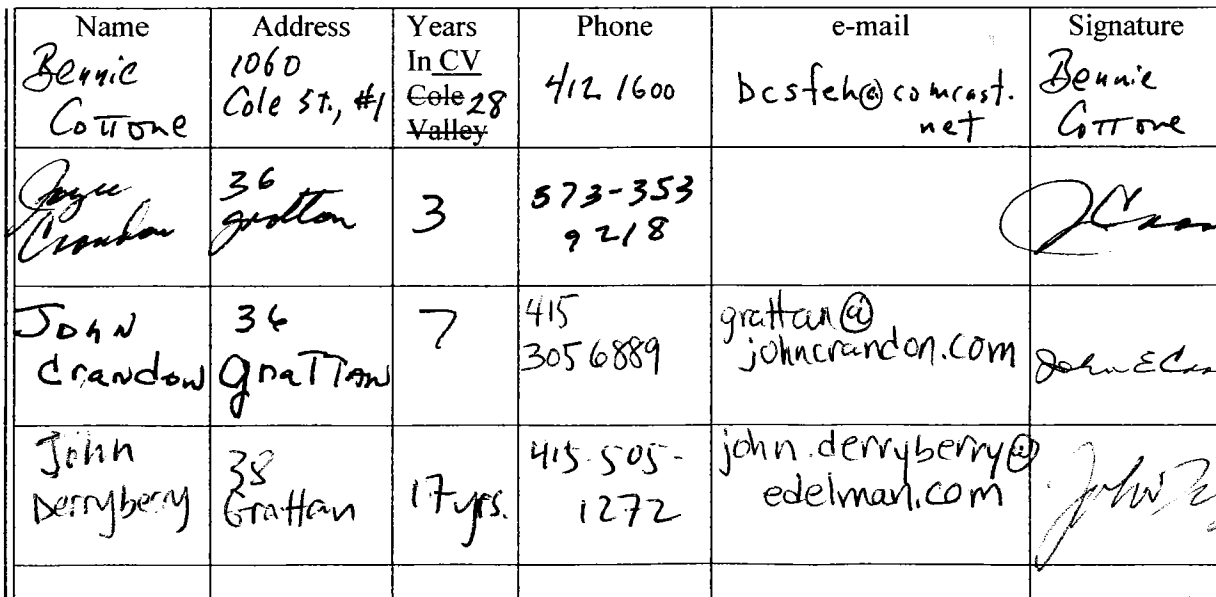 Name Address Years Phone e-mail Signature
In CV
Cole
Valley
Bennie
Cottone
1060
Cole St., #1
28
412 1600
bcsfeh@comcast.
net
Bennie
Cottone
Joyce
Crandon
36
grattan
3
573-353
9218
John
Crandon
36
Grattan
7
415
3056889
grattan@
johncrandon.com
John E
John
Derryberry
38
Grattan
17 yrs.
415-505-
1272
john.derryberry@
edelman.com
John